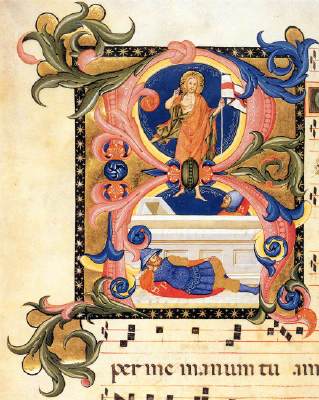 R
per me manum tu am